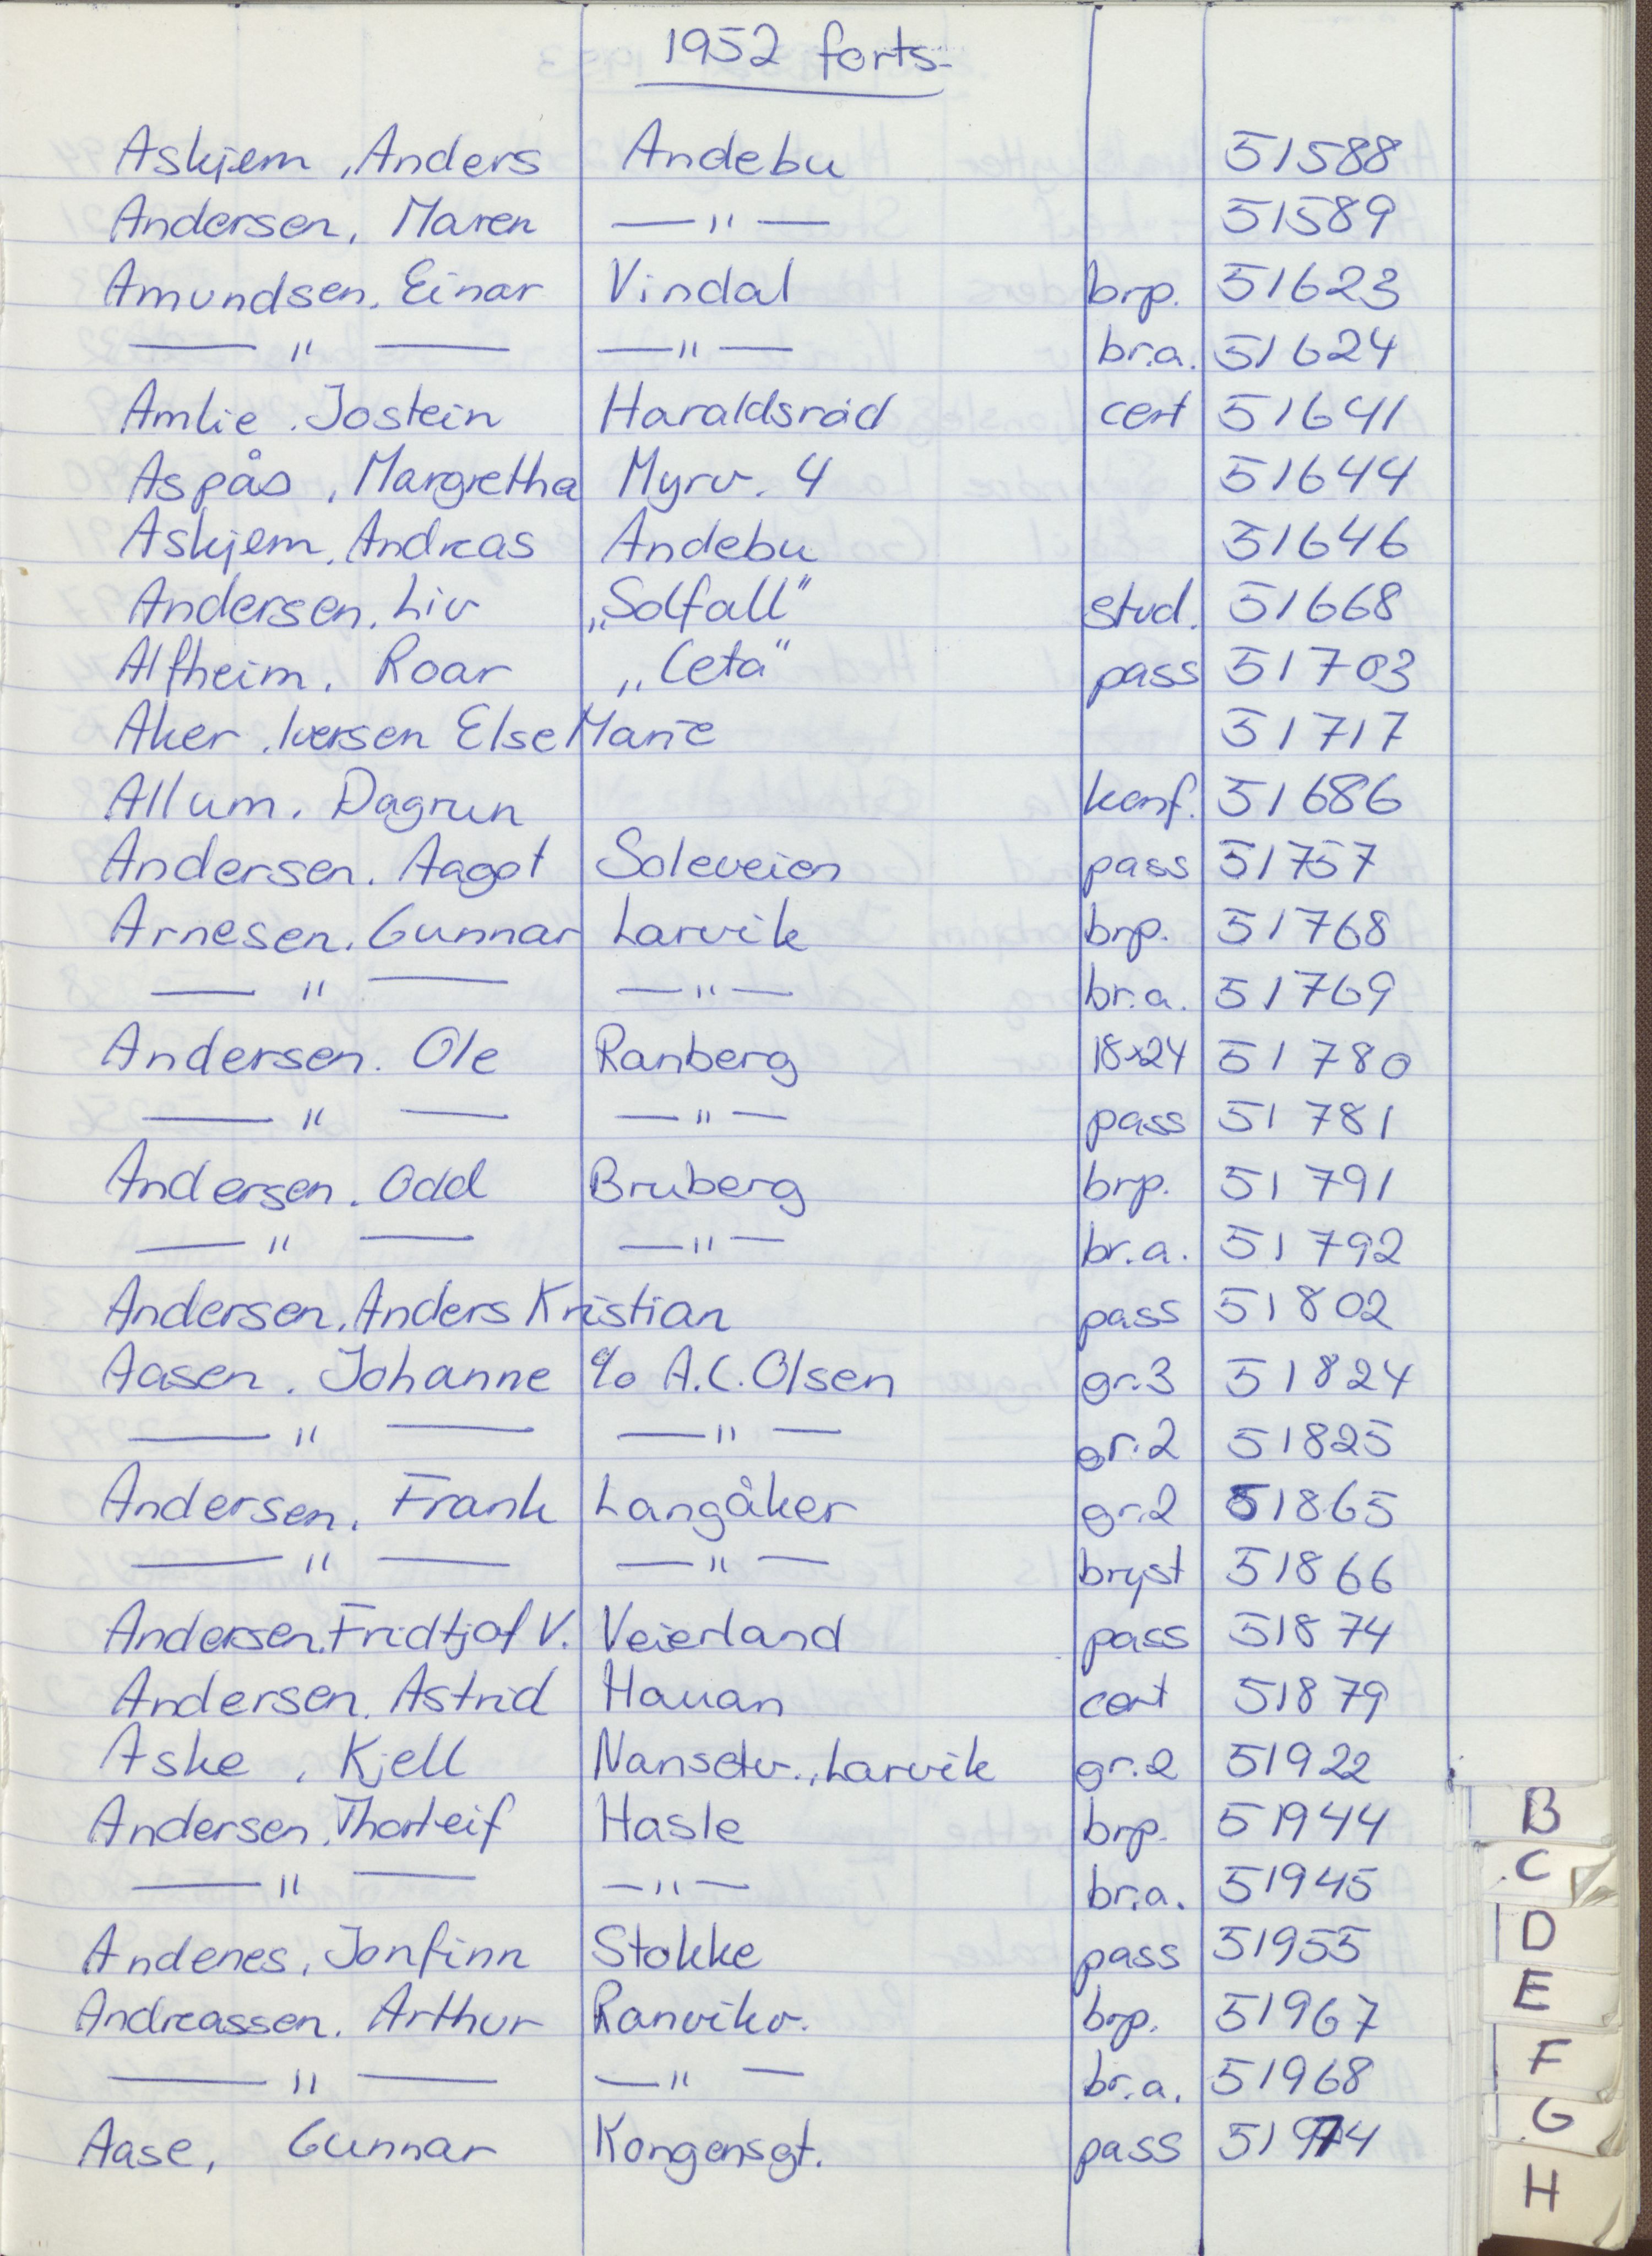 1952 forts.
Askjem, Anders Andebu 51588
Andersen, Maren — " — 51589
Amundsen, Einar Vindal brp. 51623
— " — — " — br.a. 51624
Amlie, Jostein Haraldsrød cert 51641
Aspås, Margretha Myrv. 4 51644
Askjem, Andreas Andebu 51646
Andersen, Liv „Solfall" stud. 51668
Alfheim, Roar „Ceta" pass 51703
Aker, Iversen Else Marie 51717
Allum, Dagrun konf. 51686
Andersen, Aagot Soleveien pass 51757
Arnesen, Gunnar Larvik brp. 51768
— " — — " — br.a. 51769
Andersen, Ole Ranberg 18x24 51780
— " — — " — pass 51781
Andersen, Odd Bruberg brp. 51791
— " — — " — br.a. 51792
Andersen, Anders Kristian pass 51802
Aasen, Johanne c/o A.C. Olsen gr.3 51824
— " — — " — gr.2 51825
Andersen, Frank Langåker gr.2 51865
— " — — " — bryst 51866
Andersen, Fridtjof V. Veierland pass 51874
Andersen, Astrid Hauan cert 51879
Aske, Kjell Nansetv., Larvik gr.2 51922
Andersen, Thorleif Hasle brp. 51944
— " — — " — br.a. 51945
Andenes, Jonfinn Stokke pass 51955
Andreassen, Arthur Ranvikv. brp. 51967
— " — — " — br.a. 51968
Aase, Gunnar Kongensgt. pass 51974
B
C
D
E
F
G
H